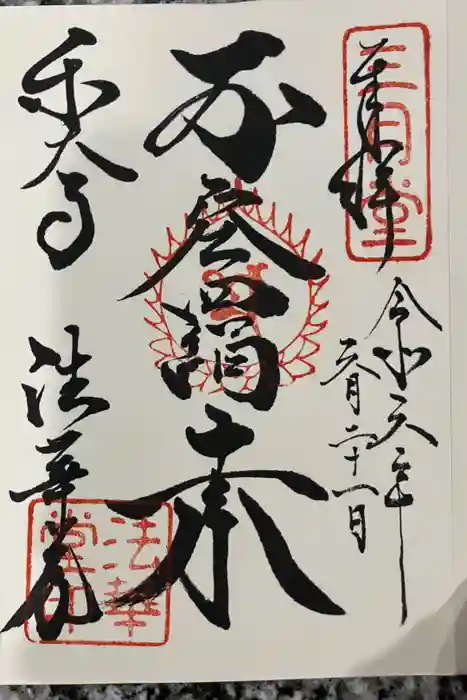 三月堂
奉拝
令和元年
月二十一日
不空羂索
東大寺
法華堂
法華堂印